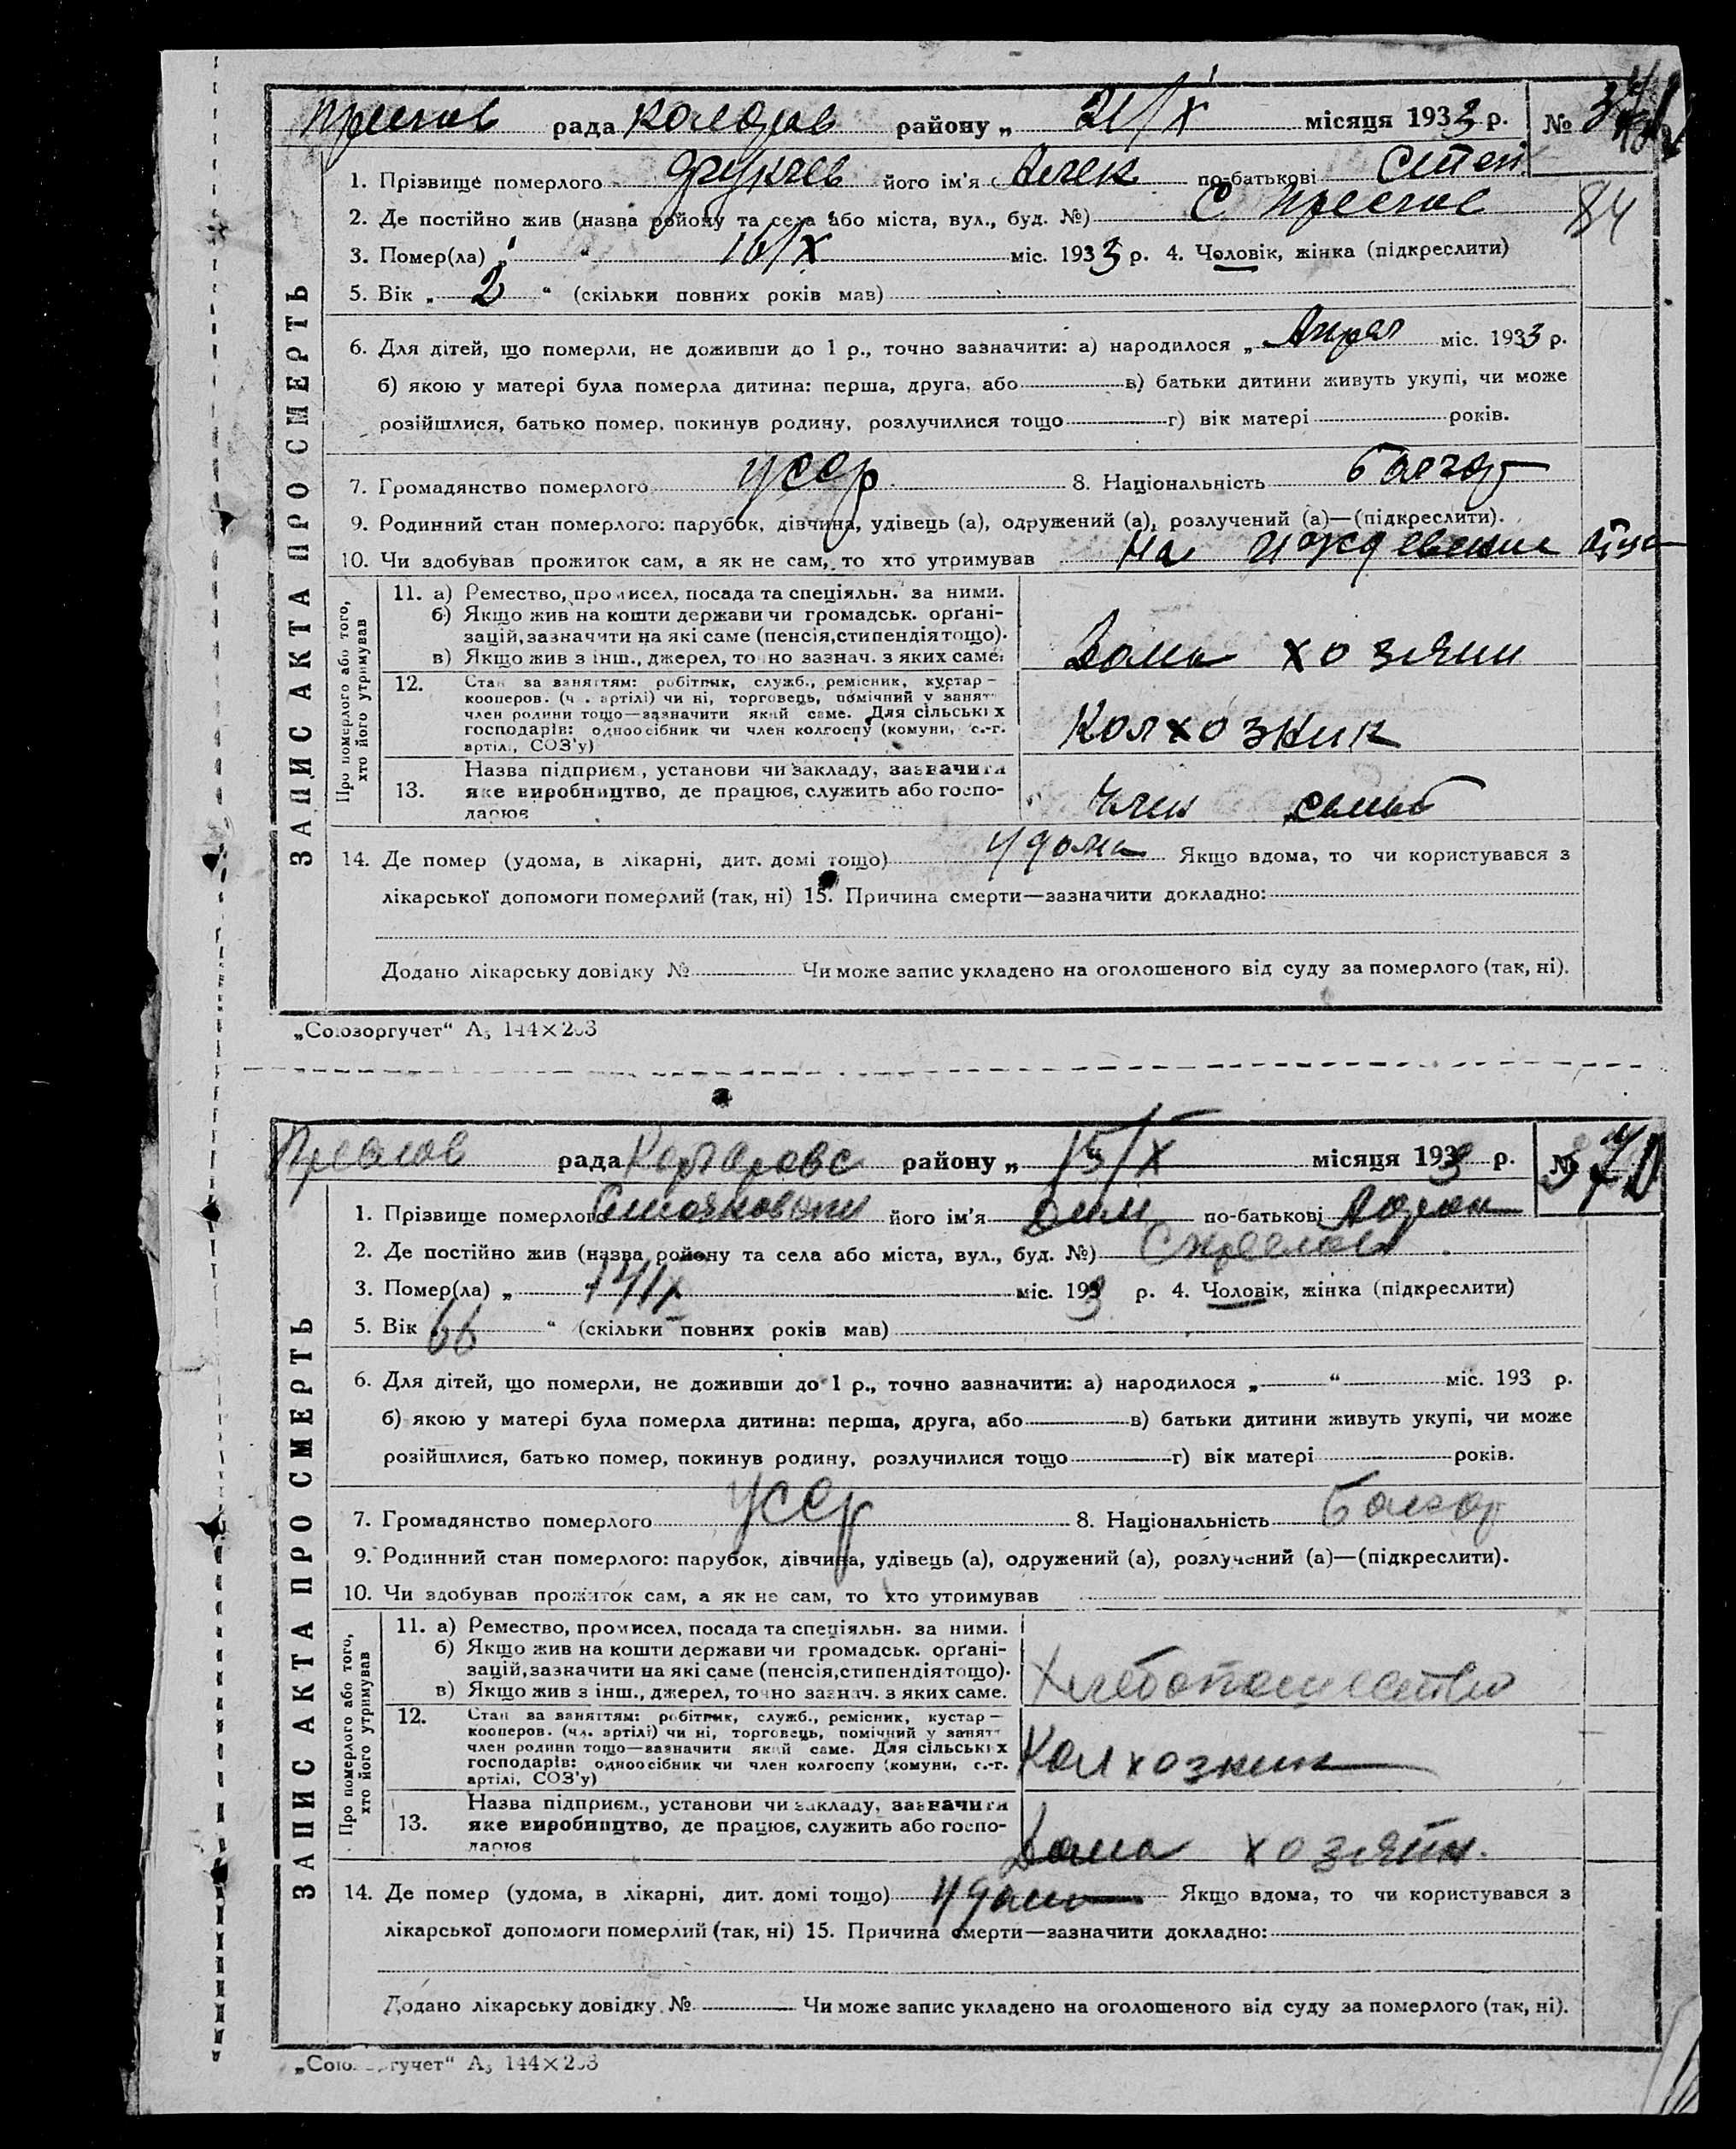 рада району „ 21/X місяця 1933 р. №
1. Прізвище померлого його ім'я Алек по-батькові Степ
2. Де постійно жив (назва району та села або міста, вул., буд. №) С Преслав
84
3. Помер(ла) „ “ 10/X міс. 1933 р. 4. Чоловік, жінка (підкреслити)
5. Вік „ 2 “ (скільки повних років мав)
6. Для дітей, що померли, не доживши до 1 р., точно зазначити: а) народилося „ Апрел міс. 1933 р.
б) якою у матері була померла дитина: перша, друга, або в) батьки дитини живуть укупі, чи може
розійшлися, батько помер, покинув родину, розлучилися тощо г) вік матері років.
7. Громадянство померлого УССР 8. Національність Болгар
9. Родинний стан померлого: парубок, дівчина, удівець (а), одружений (а), розлучений (а)—(підкреслити).
10. Чи здобував прожиток сам, а як не сам, то хто утримував На иждевении отца
ЗАПИС АКТА ПРО СМЕРТЬ
Про померлого або того, хто його утримував
11. а) Ремество, промисел, посада та спеціяльн. за ними.
б) Якщо жив на кошти держави чи громадськ. орґані-
зацій, зазначити на які саме (пенсія, стипендія тощо).
в) Якщо жив з інш., джерел, точно зазнач. з яких саме.
Дома хозяин
12. Стан за заняттям: робітник, служб., ремісник, кустар—
кооперов. (чл. артілі) чи ні, торговець, помічний у занятт
член родини тощо—зазначити який саме. Для сільських
господарів: одноосібник чи член колгоспу (комуни, с.-г.
артілі, СОЗ'у)
Колхозник
13. Назва підприєм., установи чи закладу, зазначити
яке виробництво, де працює, служить або госпо-
дарює
Член семьи
14. Де помер (удома, в лікарні, дит. домі тощо) удома Якщо вдома, то чи користувався з
лікарської допомоги померлий (так, ні) 15. Причина смерти—зазначити докладно:
Додано лікарську довідку № Чи може запис укладено на оголошеного від суду за померлого (так, ні).
„Союзоргучет“ А₅ 144×203
Преслав рада району „ 15/X місяця 1933 р. № 370
1. Прізвище померлого його ім'я Дим по-батькові
2. Де постійно жив (назва району та села або міста, вул., буд. №) С Преслав
3. Помер(ла) „ 14/X міс. 1933 р. 4. Чоловік, жінка (підкреслити)
5. Вік 66 “ (скільки повних років мав)
6. Для дітей, що померли, не доживши до 1 р., точно зазначити: а) народилося „ “ міс. 193 р.
б) якою у матері була померла дитина: перша, друга, або в) батьки дитини живуть укупі, чи може
розійшлися, батько помер, покинув родину, розлучилися тощо г) вік матері років.
7. Громадянство померлого УССР 8. Національність Болгар
9. Родинний стан померлого: парубок, дівчина, удівець (а), одружений (а), розлучений (а)—(підкреслити).
10. Чи здобував прожиток сам, а як не сам, то хто утримував
ЗАПИС АКТА ПРО СМЕРТЬ
Про померлого або того, хто його утримував
11. а) Ремество, промисел, посада та спеціяльн. за ними.
б) Якщо жив на кошти держави чи громадськ. орґані-
зацій, зазначити на які саме (пенсія, стипендія тощо).
в) Якщо жив з інш., джерел, точно зазнач. з яких саме.
Хлебопашество
12. Стан за заняттям: робітник, служб., ремісник, кустар—
кооперов. (чл. артілі) чи ні, торговець, помічний у занятт
член родини тощо—зазначити який саме. Для сільських
господарів: одноосібник чи член колгоспу (комуни, с.-г.
артілі, СОЗ'у)
Колхозник
13. Назва підприєм., установи чи закладу, зазначити
яке виробництво, де працює, служить або госпо-
дарює
Дома хозяин.
14. Де помер (удома, в лікарні, дит. домі тощо) удома Якщо вдома, то чи користувався з
лікарської допомоги померлий (так, ні) 15. Причина смерти—зазначити докладно:
Додано лікарську довідку № Чи може запис укладено на оголошеного від суду за померлого (так, ні).
„Союзоргучет“ А₅ 144×203